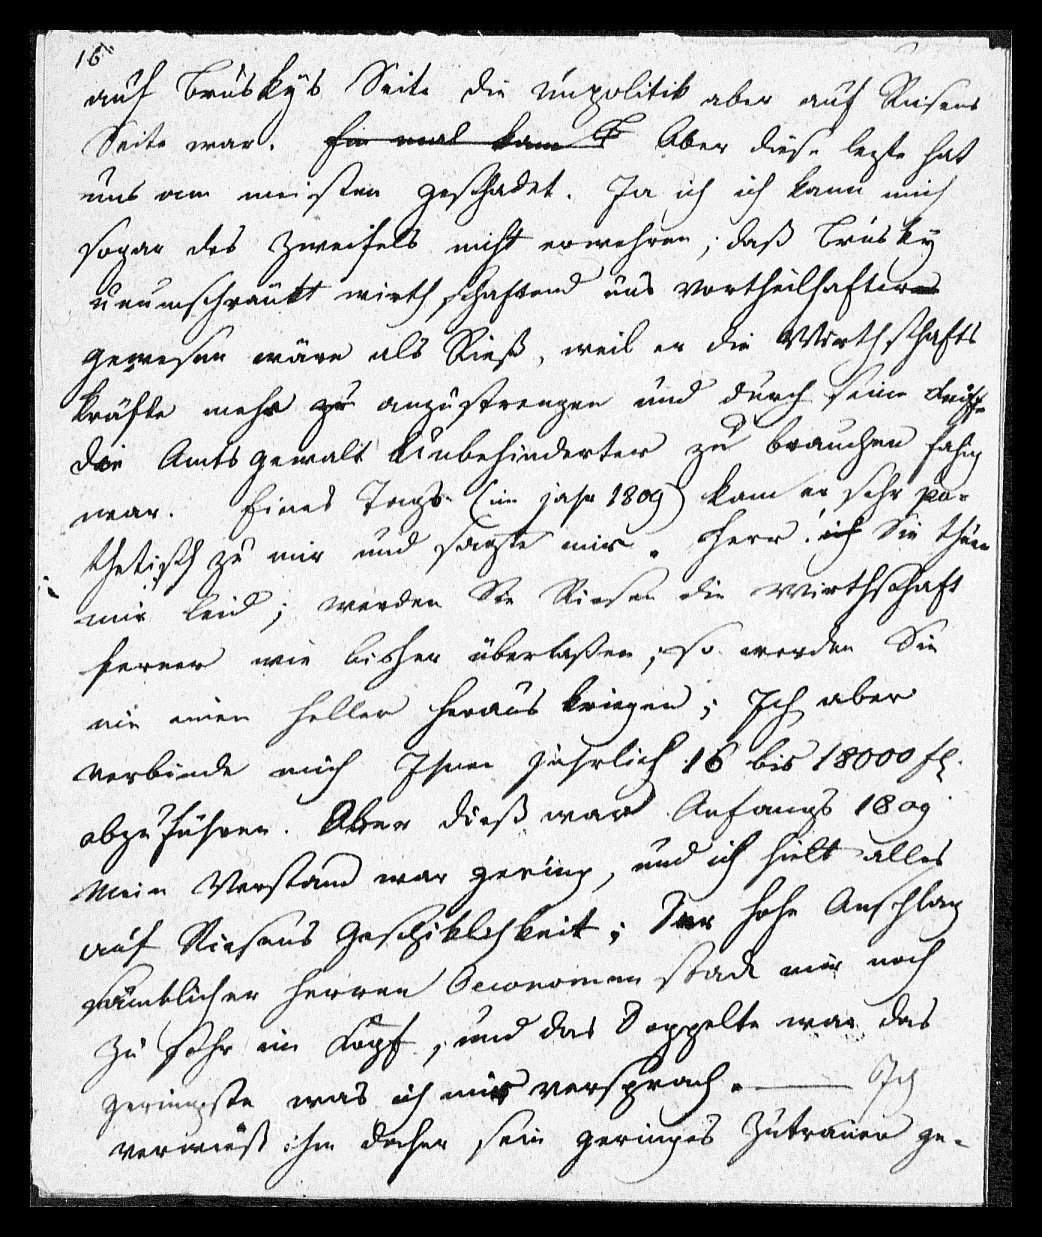 16
auf Brüskÿs Seite die Unpolitik aber auf Riesens
Seite war. Ein mal kam Aber diese lezte hat
uns am meisten geschadet. Ja ich ich kann mich
sogar des Zweifels nicht erwehren, daß Brüsky
unumschränkt wirthschaftend uns vortheilhafter
gewesen wäre als Rieß, weil er die Wirthschafts
kräfte mehr zu anzustrengen und durch seine
die Amtsgewalt Unbehinderter zu brauchen fähig
war. Eines Tags (im jahr 1809) kam er sehr pa-
thetisch zu mir und sagte mir. Herr! ich Sie thun
mir leid; werden Sie Riesen die Wirthschaft
ferner wie bisher überlaßen, so werden Sie
nie einen Heller heraus kriegen; Ich aber
verbinde mich Ihnen jährlich 16 bis 18000 fl.
abzuführen. Aber dieß war Anfangs 1809
Mein Verstand war gering, und ich hielt alles
auf Riesens Geschiklichkeit; Der hohe Anschlag
sämtlicher Herren Oeconomen stack mir noch
zu sehr im Kopf, und das Doppelte war das
geringste was ich mir versprach. — Ich
verwieß ihm daher sein geringes Zutrauen ge-